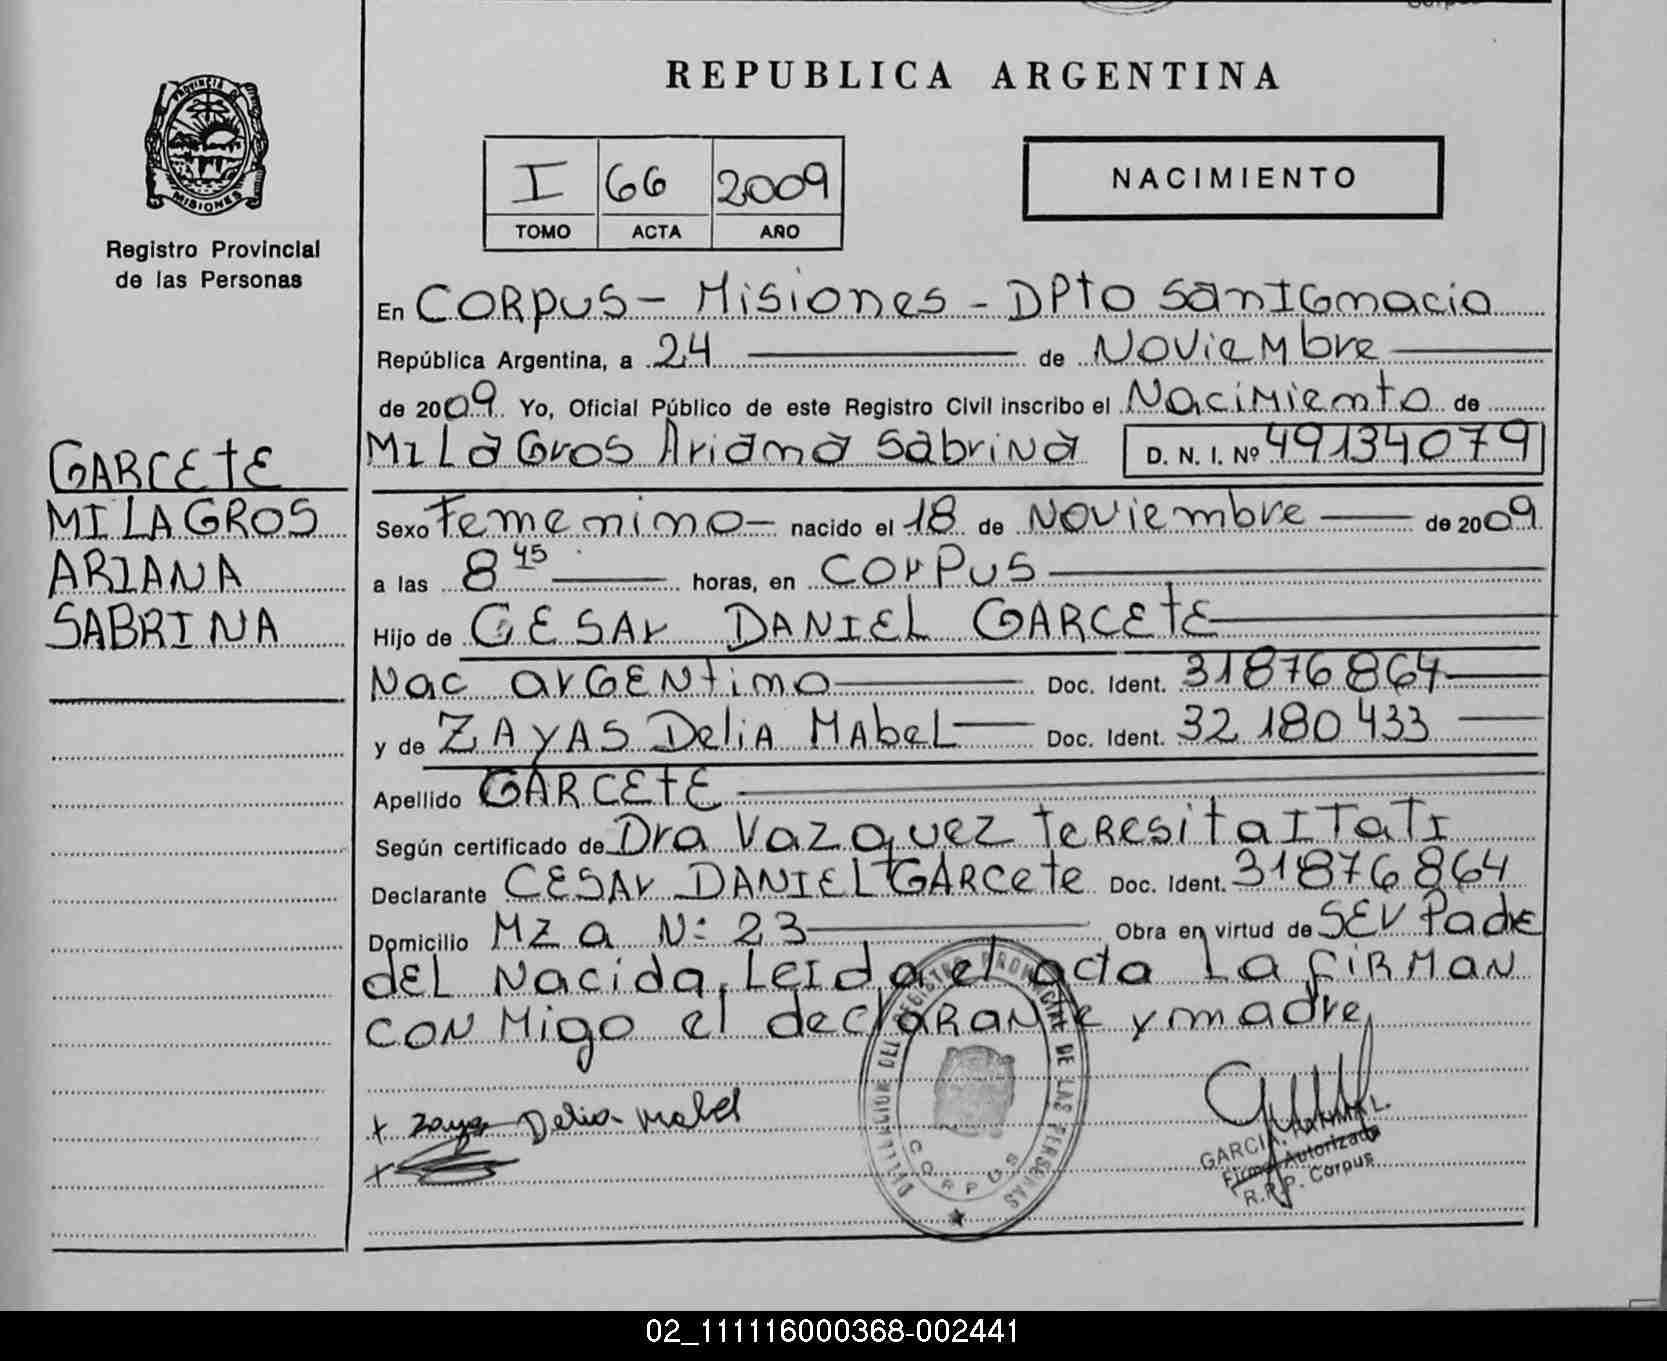 REPUBLICA ARGENTINA
PROVINCIA DE
MISIONES
Registro Provincial
de las Personas
I 66 2009
TOMO ACTA AÑO
NACIMIENTO
En CORPUS - Misiones - DPto SanIGnacio
República Argentina, a 24 de Noviembre
de 2009 Yo, Oficial Público de este Registro Civil inscribo el Nacimiento de
MiLaGros Ariana Sabrina D. N. I. Nº 49134079
GARCETE
MILAGROS
ARIANA
SABRINA
Sexo Femenino - nacido el 18 de Noviembre de 2009
a las 8 45 horas, en CorPus
Hijo de CESAr DANIEL GARCETE
Nac arGENtino Doc. Ident. 31876864
y de ZAYAS DeliA MAbeL Doc. Ident. 32 180 433
Apellido GARCETE
Según certificado de Dra Vazquez TeResita ITaTI
Declarante CESAr DANIEL GARCete Doc. Ident. 31876864
Domicilio MZ a N: 23 Obra en virtud de SEr Padre
dEL Nacida, LEIda el acta La FiRMaN
CONMigo el decLARANte y madre
x Zayas Delia Mabel
x
DELEGACION DEL REGISTRO PROVINCIAL DE LAS PERSONAS
CORPUS
GARCIA
Firma Autorizada
R.P.P. Corpus
02_111116000368-002441